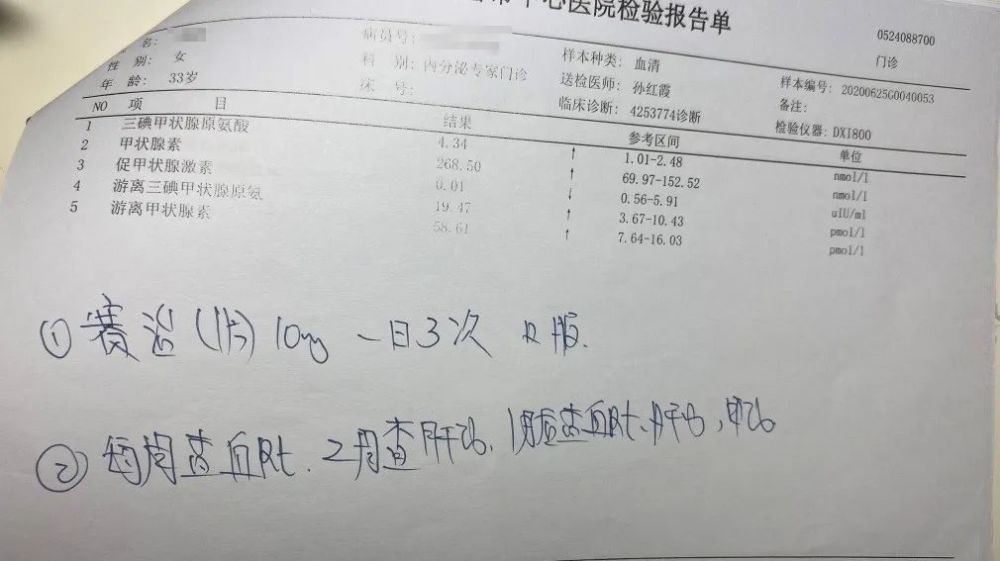 中心医院检验报告单
0524088700
门诊
名:
病员号:
样本种类: 血清
样本编号: 20200625G0040053
性 别: 女
科 别: 内分泌专家门诊
送检医师: 孙红霞
备注:
年 龄: 33岁
床 号:
临床诊断: 4253774诊断
检验仪器: DXI800
NO 项 目 结果 参考区间 单位
1 三碘甲状腺原氨酸 4.34 ↑ 1.01-2.48 nmol/l
2 甲状腺素 268.50 ↑ 69.97-152.52 nmol/l
3 促甲状腺激素 0.01 ↓ 0.56-5.91 uIU/ml
4 游离三碘甲状腺原氨 19.47 ↑ 3.67-10.43 pmol/l
5 游离甲状腺素 58.61 ↑ 7.64-16.03 pmol/l
① 赛治(1片) 10mg 一日3次 口服.
② 每周查血Rt. 2周查肝功, 1月后查血Rt、肝功, 甲功